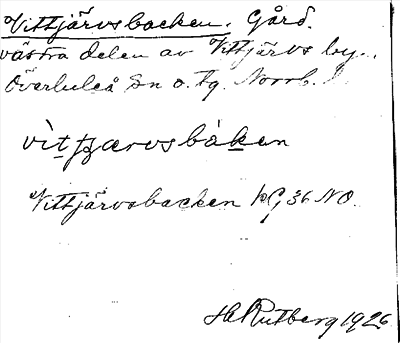 Vittjärvsbacken. Gård.
västra delen av Vittjärvs by.
Överluleå Sn o. Tg. Norrb. l.
vìttjærvsbáken
Vittjärvsbacken kG 36 NO.
H. Rutberg 1926